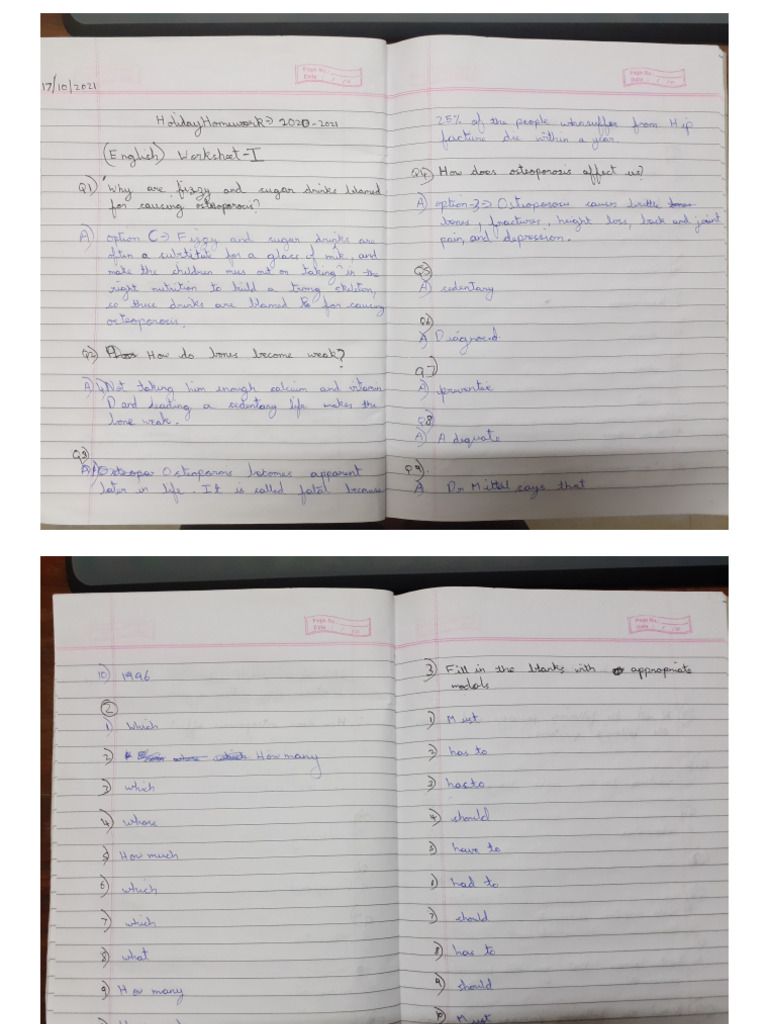 Page No.
Date
17/10/2021
Holiday Homework → 2020-2021
(English) Worksheet-I
Q1) Why are fizzy and sugar drinks blamed
for causing osteoporosis?
A) option C → Fizzy and sugar drinks are
often a substitute for a glass of milk, and
make the children miss out on taking in the
right nutrition to build a strong skeleton,
so these drinks are blamed for causing
osteoporosis.
Q2) How do bones become weak?
A) Not taking him enough calcium and vitamin
D and leading a sedentary life makes the
bone weak.
Q3)
A) Osteoporosis becomes apparent
later in life. It is called fatal because
Page No.
Date
25% of the people who suffer from Hip
facture die within a year.
Q4) How does osteoporosis affect us?
A) option → Osteoporosis causes brittle
bones, fractures, height loss, back and joint
pain, and depression.
Q5)
A) sedentary
Q6)
A) Diagnosed
Q7)
A)
Q8)
A) Adequate
Q9).
A Dr Mittal says that
Page No.
Date
10) 1996
2
1) Which
2) How many
3) which
4) whose
5) How much
6) which
7) which
8) what
9) How many
Page No.
Date
3) Fill in the blanks with appropriate
modals
1) Must
2) has to
3) has to
4) should
5) have to
6) had to
7) should
8) has to
9) should
10) Must